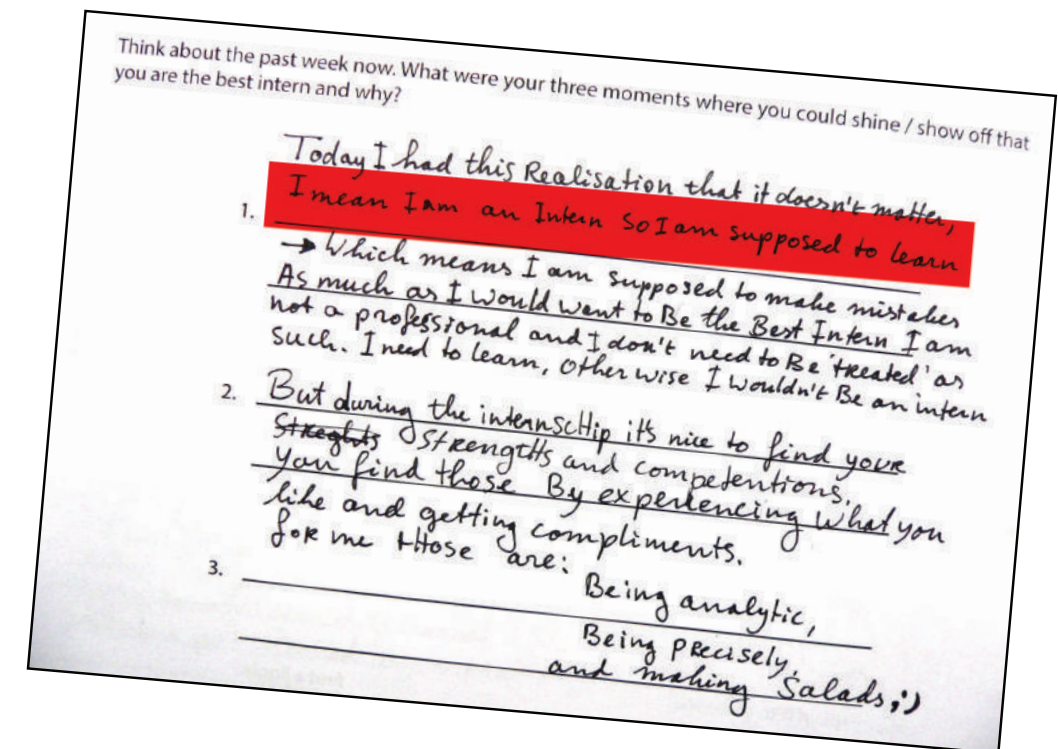 Think about the past week now. What were your three moments where you could shine / show off that
you are the best intern and why?
Today I had this Realisation that it doesn't matter,
1. I mean I am an Intern so I am supposed to learn
→ Which means I am supposed to make mistakes
As much as I would want to Be the Best Intern I am
not a professional and I don't need to Be 'treated' as
such. I need to learn, otherwise I wouldn't Be an intern
2. But during the internscHip it's nice to find your
Streghts StRengtHs and competentions.
You find those By experiencing what you
like and getting compliments.
foR me tHose are:
3. Being analytic,
Being pRecisely,
and making Salads ;')